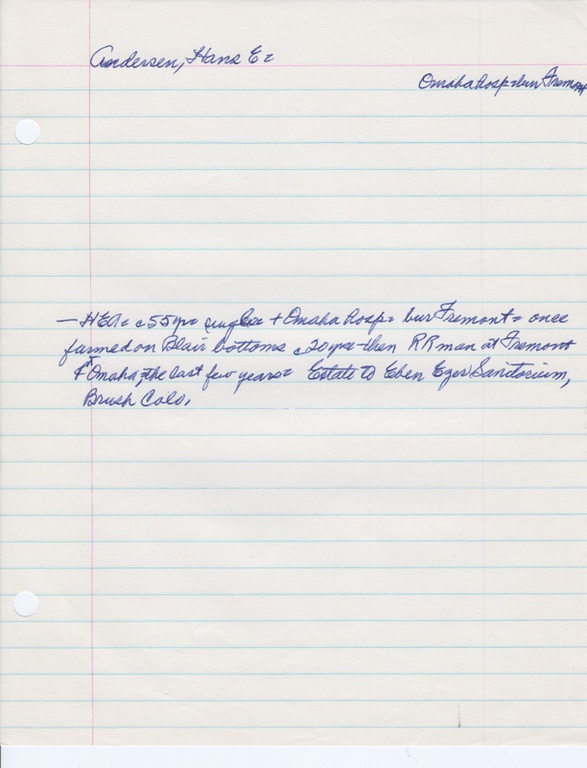 Andersen, Hans E=
Omaha Hosp= bur Fremont
— HEA= c55yr= single= + Omaha Hosp= bur Fremont= once
farmed on Blair bottoms c20yrs-then RR man at Fremont
& at Omaha, the last few years= Estate to Eben Ezer Sanitorium,
Brush Colo.